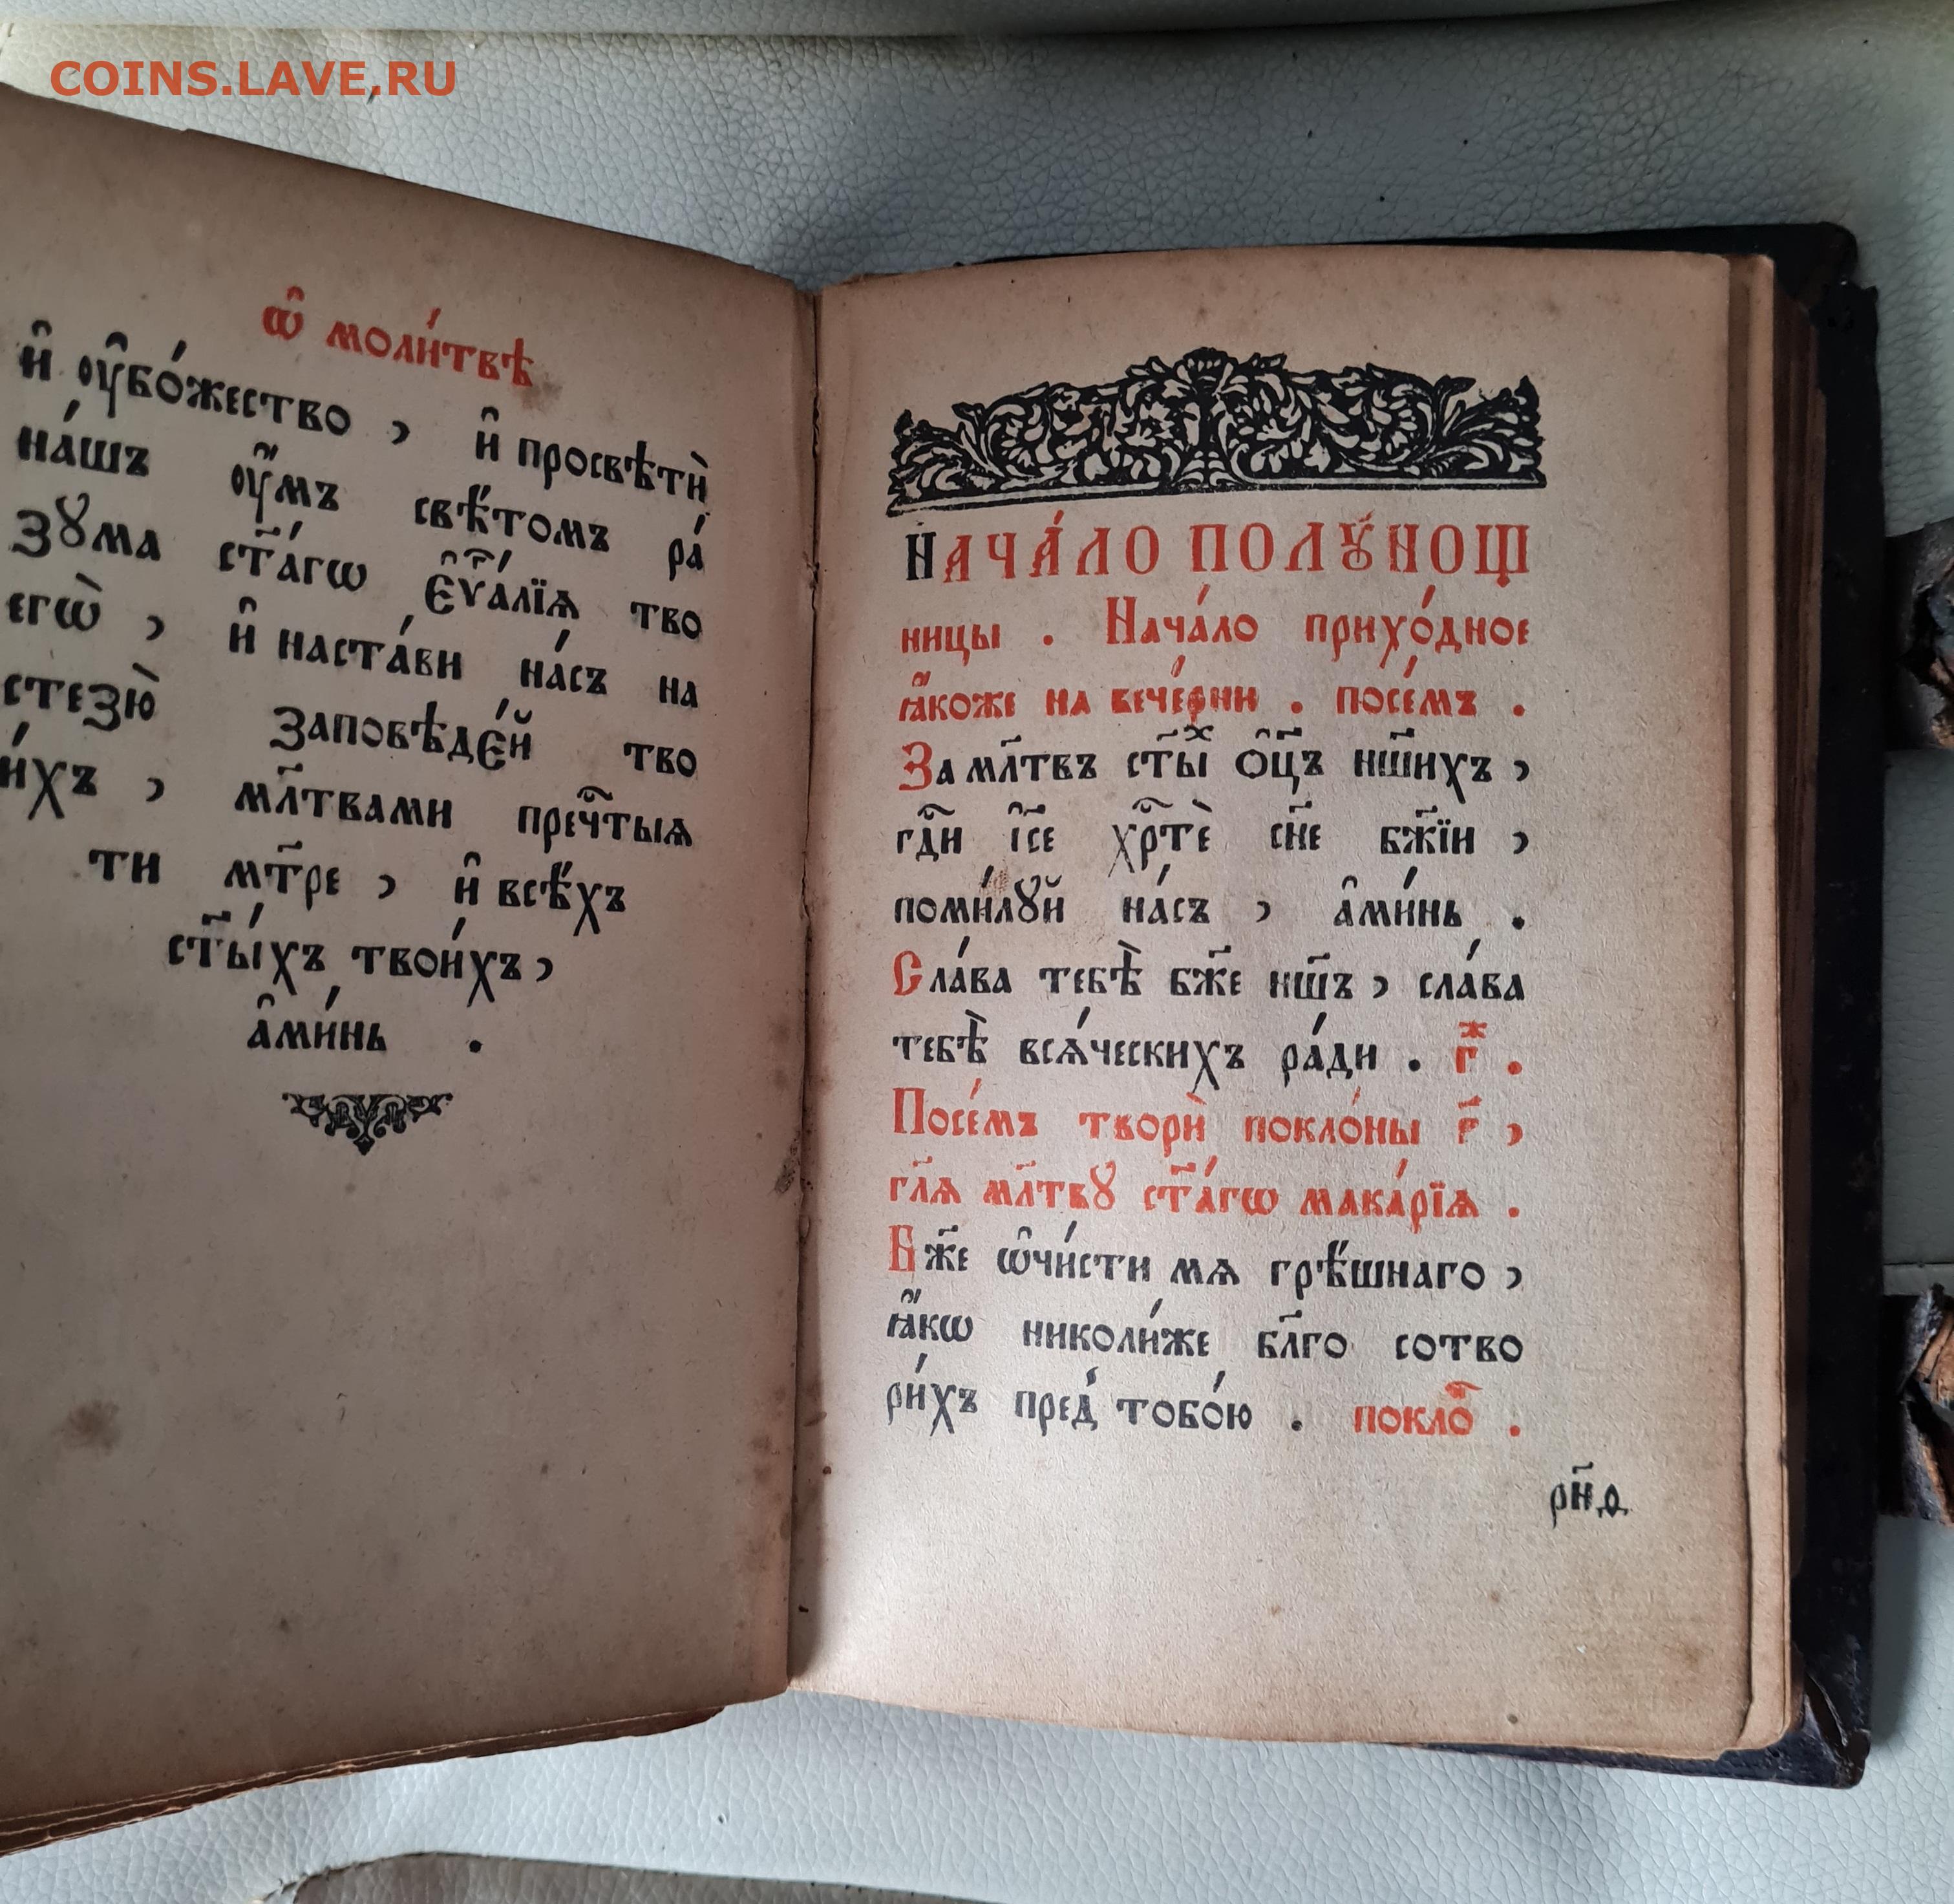 COINS.LAVE.RU
ѡ҆ моли́твѣ
и҆ ѹ҆бо́жество , и҆ просвѣтѝ
на́шъ ѹ҆́мъ свѣ́томъ ра́
зꙋма ст҃а́гѡ є҆ѵⷢ҇а́лїѧ тво
егѡ̀ , и҆ наста́ви на́съ на
стезю̀ заповѣде́й тво
и́хъ , мл҃твами пречⷭ҇тыѧ
ти мт҃ре , и҆ всѣ́хъ
ст҃ы́хъ твои́хъ ,
а҆ми́нь .
Нача́ло полꙋнощ
ницы . Нача́ло прихо́дное
ꙗ҆́коже на вече́рни . посе́мъ .
За мл҃твъ ст҃ыⷯ ѻ҆ц҃ъ нш҃ихъ ,
гдⷭ҇и і҆с҃е хрⷭ҇тѐ сн҃е бж҃їи ,
поми́лꙋй на́съ , а҆ми́нь .
Сла́ва тебѣ̀ бж҃е нш҃ъ , сла́ва
тебѣ̀ всѧ́ческихъ ра́ди . гⷤ .
Посе́мъ творѝ покло́ны г҃ ,
гл҃ѧ мл҃твꙋ ст҃а́гѡ мака́рїѧ .
Бж҃е ѡ҆чи́сти мѧ грѣ́шнаго ,
ꙗ҆́кѡ николи́же бл҃го сотво
ри́хъ пред̾ тобо́ю . поклоⷩ҇ .
рн҃д